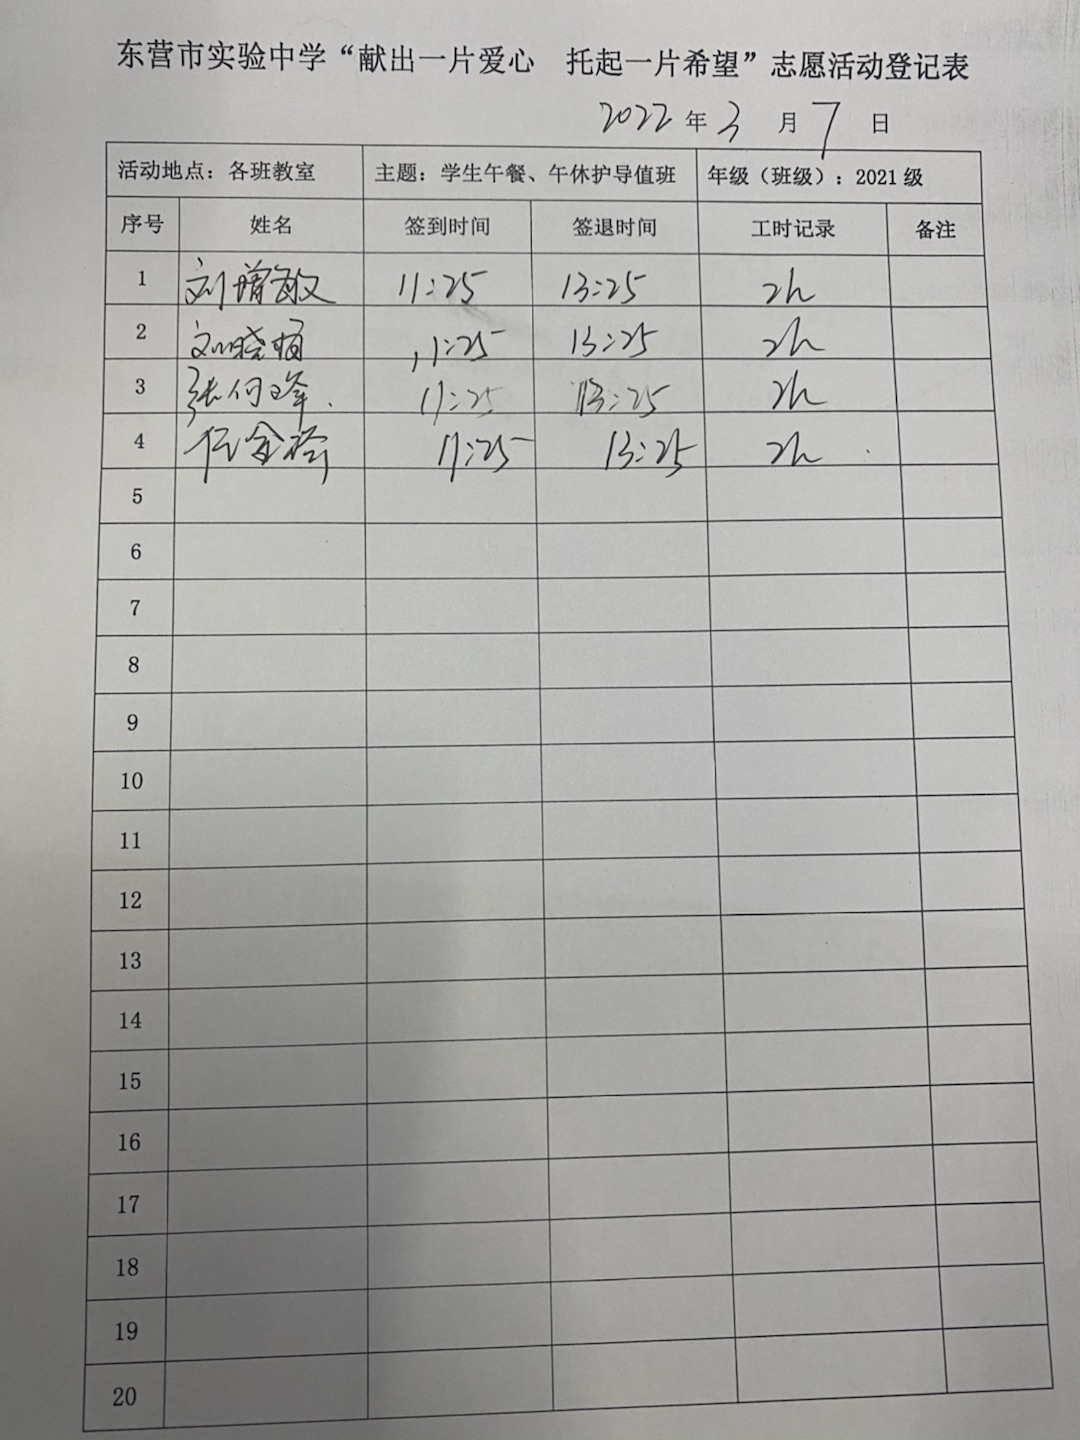 东营市实验中学“献出一片爱心 托起一片希望”志愿活动登记表
2022 年 3 月 7 日
活动地点：各班教室 主题：学生午餐、午休护导值班 年级（班级）：2021 级
序号 姓名 签到时间 签退时间 工时记录 备注
1 刘增敏 11:25 13:25 2h
2 刘晓梅 11:25 13:25 2h
3 张何峰 11:25 13:25 2h
4 任金 11:25 13:25 2h
5
6
7
8
9
10
11
12
13
14
15
16
17
18
19
20